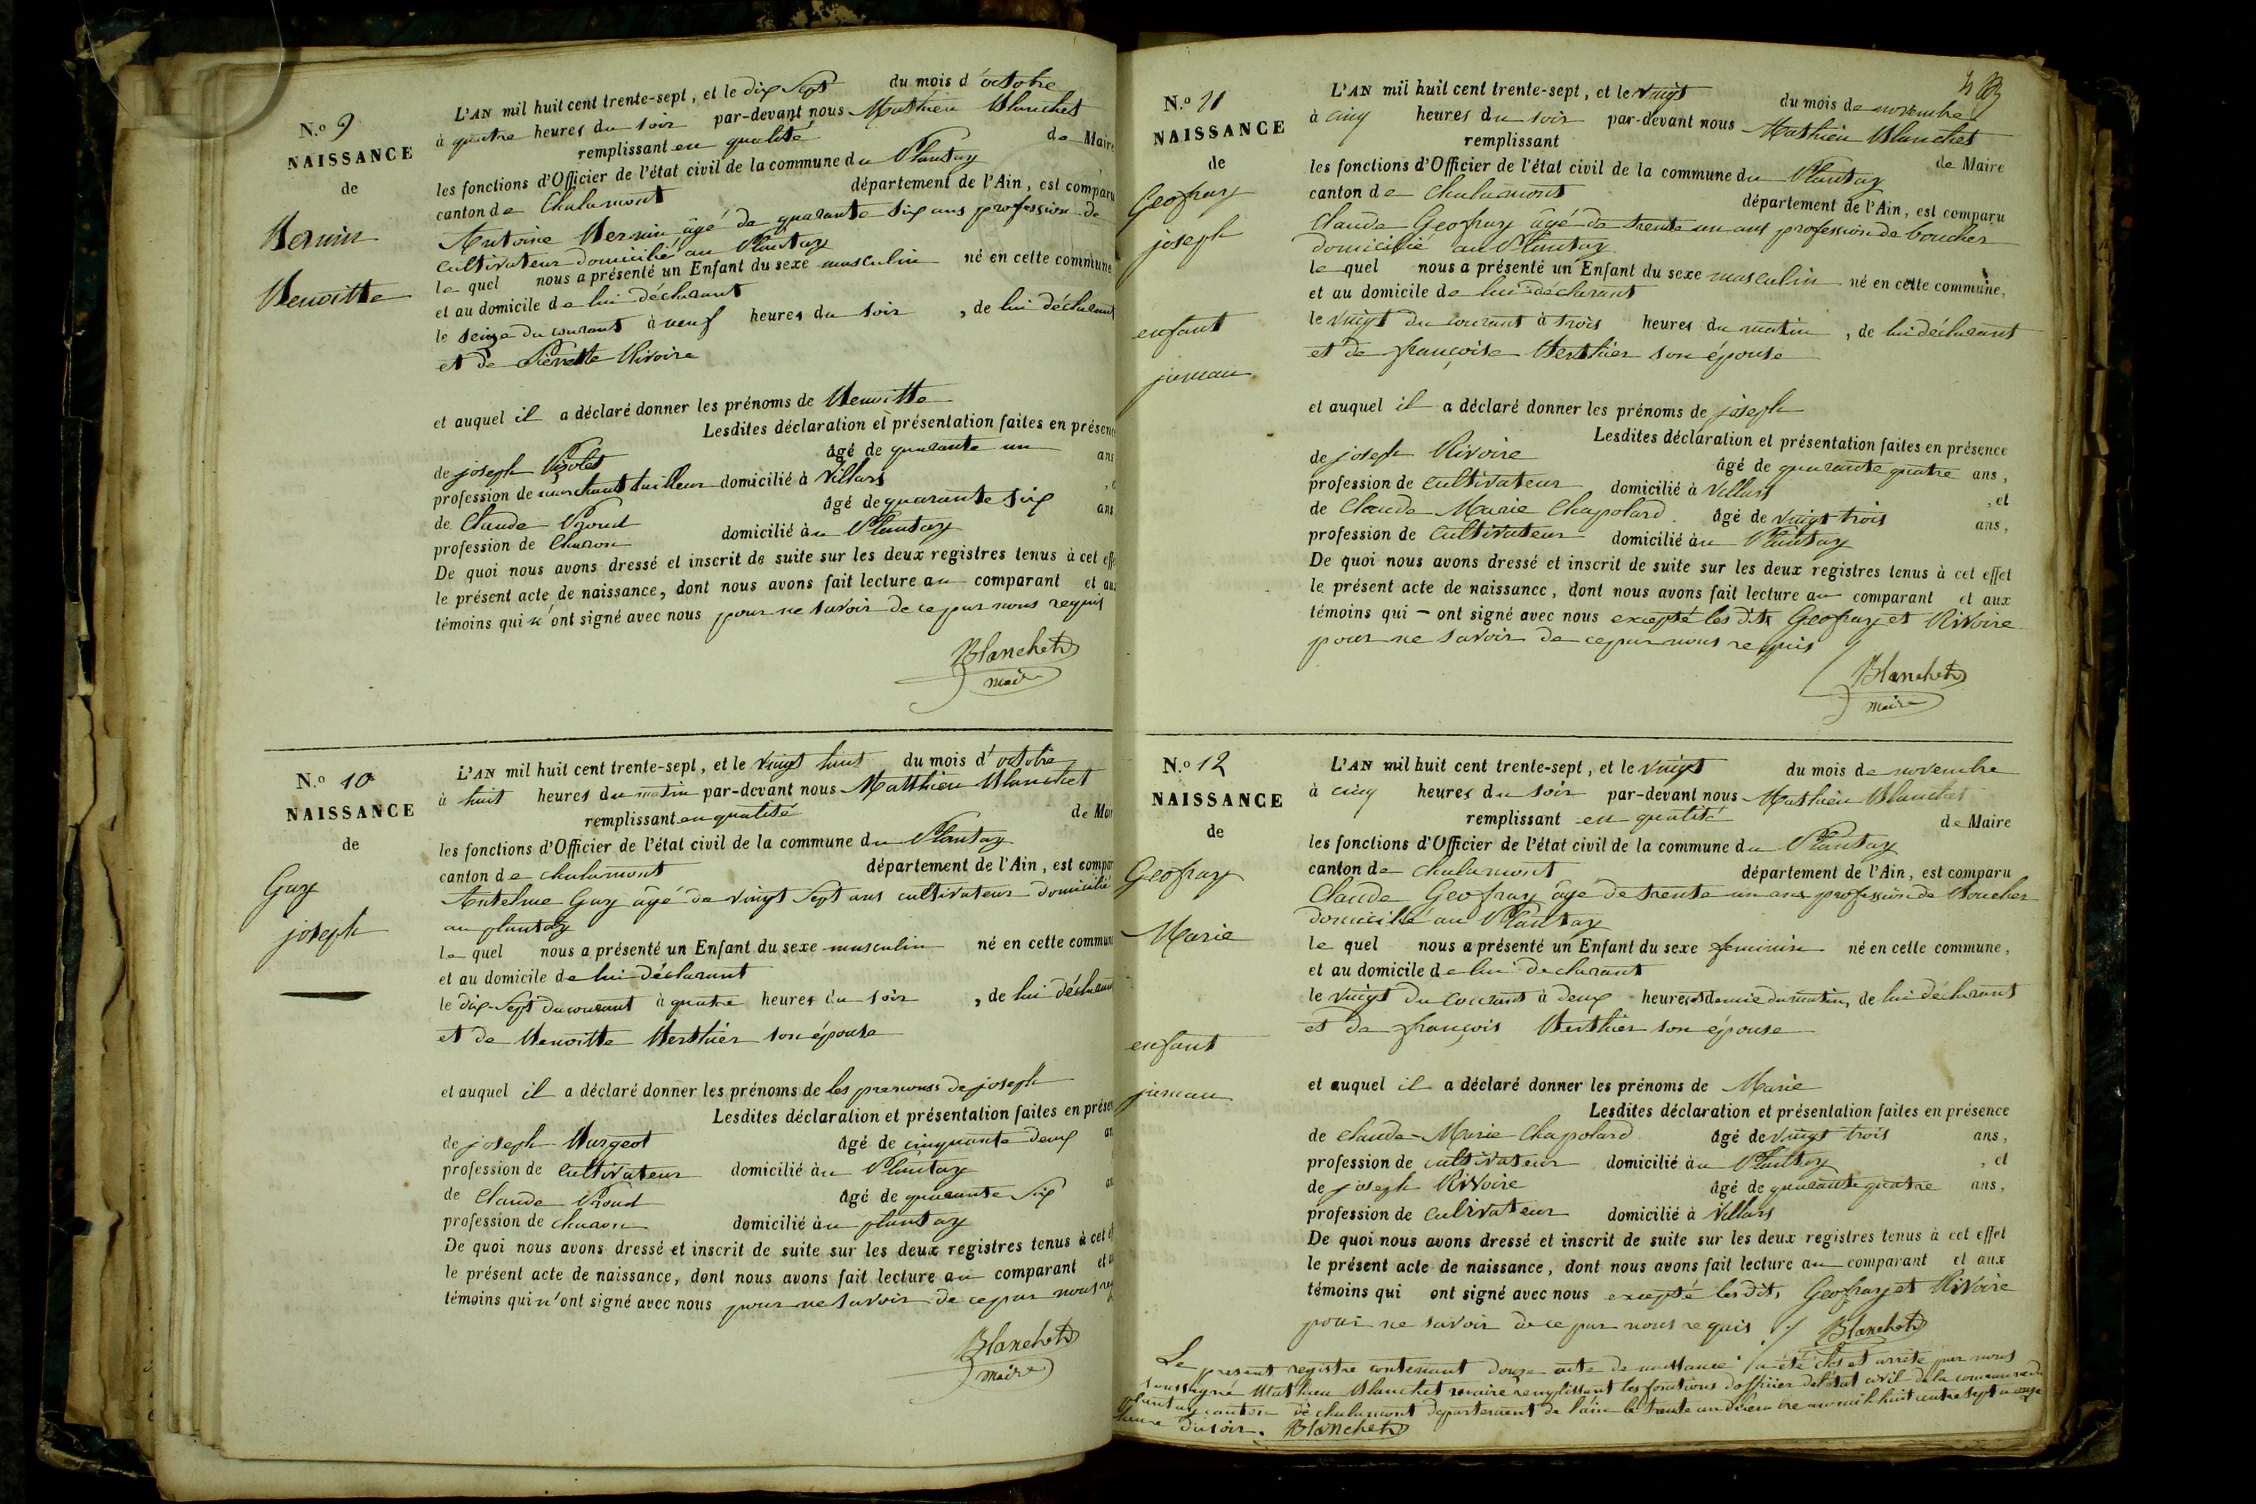 N.º 9
NAISSANCE
de
Bernin
Benoitte
L'AN mil huit cent trente-sept, et le dix sept du mois d'octobre
à quatre heures du soir par-devant nous Mathieu Blanchet
remplissant en qualité de Maire
les fonctions d'Officier de l'état civil de la commune du Plantay
canton de Chalamont département de l'Ain, est comparu
Antoine Bernin âgé de quarante six ans profession de
cultivateur domicilié au Plantay
le quel nous a présenté un Enfant du sexe masculin né en cette commune
et au domicile de lui déclarant
le seize du courant à neuf heures du soir, de lui déclarant
et de Pierrette Rivoire
et auquel il a déclaré donner les prénoms de Benoitte
Lesdites déclaration et présentation faites en présen
de joseph âgé de quarante un ans
profession de marchant tailleur domicilié à Villars
de Claude Proud âgé de quarante six ans
profession de Charon domicilié au Plantay
De quoi nous avons dressé et inscrit de suite sur les deux registres tenus à cet eff
le présent acte de naissance, dont nous avons fait lecture au comparant et aux
témoins qui n'ont signé avec nous pour ne savoir de ce par nous requis
Blanchet
maire
N.º 10
NAISSANCE
de
Guy
joseph
L'AN mil huit cent trente-sept, et le vingt huit du mois d'octobre
à huit heures du matin par-devant nous Matthieu Blanchet
remplissant en qualité de Mair
les fonctions d'Officier de l'état civil de la commune du Plantay
canton de chalamont département de l'Ain, est compar
Antelme Guy âgé de vingt sept ans cultivateur domicilié
au plantay
le quel nous a présenté un Enfant du sexe masculin né en cette commun
et au domicile de lui déclarant
le dix-sept du courant à quatre heures du soir, de lui déclarant
et de Benoitte Berthier son épouse
et auquel il a déclaré donner les prénoms de les prenoms de joseph
Lesdites déclaration et présentation faites en présen
de joseph Burgeot âgé de cinquante deux an
profession de cultivateur domicilié au Plantay
de Claude Proud âgé de quarante six an
profession de charon domicilié au plantay
De quoi nous avons dressé et inscrit de suite sur les deux registres tenus à cet e
le présent acte de naissance, dont nous avons fait lecture au comparant et a
témoins qui n'ont signé avec nous pour ne savoir de ce par nous req
Blanchet
maire
N.º 11
NAISSANCE
de
Geofray
joseph
enfant
jumeau
L'AN mil huit cent trente-sept, et le vingt du mois de novembre
à cinq heures du soir par-devant nous Mathieu Blanchet
remplissant de Maire
les fonctions d'Officier de l'état civil de la commune du Plantay
canton de Chalamont département de l'Ain, est comparu
Claude Geofray âgé de trente un ans profession de boucher
domicilié au Plantay
le quel nous a présenté un Enfant du sexe masculin né en cette commune,
et au domicile de lui déclarant
le vingt du courant à trois heures du matin, de lui déclarant
et de françoise Berthier son épouse
et auquel il a déclaré donner les prénoms de joseph
Lesdites déclaration et présentation faites en présence
de joseph Rivoire âgé de quarante quatre ans,
profession de cultivateur domicilié à Villars, et
de Claude Marie Chapolard âgé de vingt trois ans,
profession de cultivateur domicilié au Plantay
De quoi nous avons dressé et inscrit de suite sur les deux registres tenus à cet effet
le présent acte de naissance, dont nous avons fait lecture au comparant et aux
témoins qui - ont signé avec nous excepté les dits Geofray et Rivoire
pour ne savoir de ce par nous requis
Blanchet
maire
N.º 12
NAISSANCE
de
Geofray
Marie
enfant
jumeau
L'AN mil huit cent trente-sept, et le vingt du mois de novembre
à cinq heures du soir par-devant nous Mathieu Blanchet
remplissant en qualité de Maire
les fonctions d'Officier de l'état civil de la commune du Plantay
canton de chalamont département de l'Ain, est comparu
Claude Geofray âgé de trente un ans profession de Boucher
domicilié au Plantay
le quel nous a présenté un Enfant du sexe feminin né en cette commune,
et au domicile de lui declarant
le vingt du courant à deux heures et demie du matin, de lui déclarant
et de françois Berthier son épouse
et auquel il a déclaré donner les prénoms de Marie
Lesdites déclaration et présentation faites en présence
de claude-Marie Chapolard âgé de vingt trois ans,
profession de cultivateur domicilié au Plantay, et
de joseph Rivoire âgé de quarante quatre ans,
profession de culivateur domicilié à Villars
De quoi nous avons dressé et inscrit de suite sur les deux registres tenus à cet effet
le présent acte de naissance, dont nous avons fait lecture au comparant et aux
témoins qui ont signé avec nous excepté les dits Geofray et Rivoire
pour ne savoir de ce par nous requis Blanchet
Le present registre contenant douze acte de naissance a été clos et arrêté par nous
soussigné Mathieu Blanchet maire remplissant les fonctions d'officier de l'état civil de la commune du
plantay canton de chalamont departement de l'ain le trente un decembre mil huit cent trente sept a onze
heure du soir. Blanchet